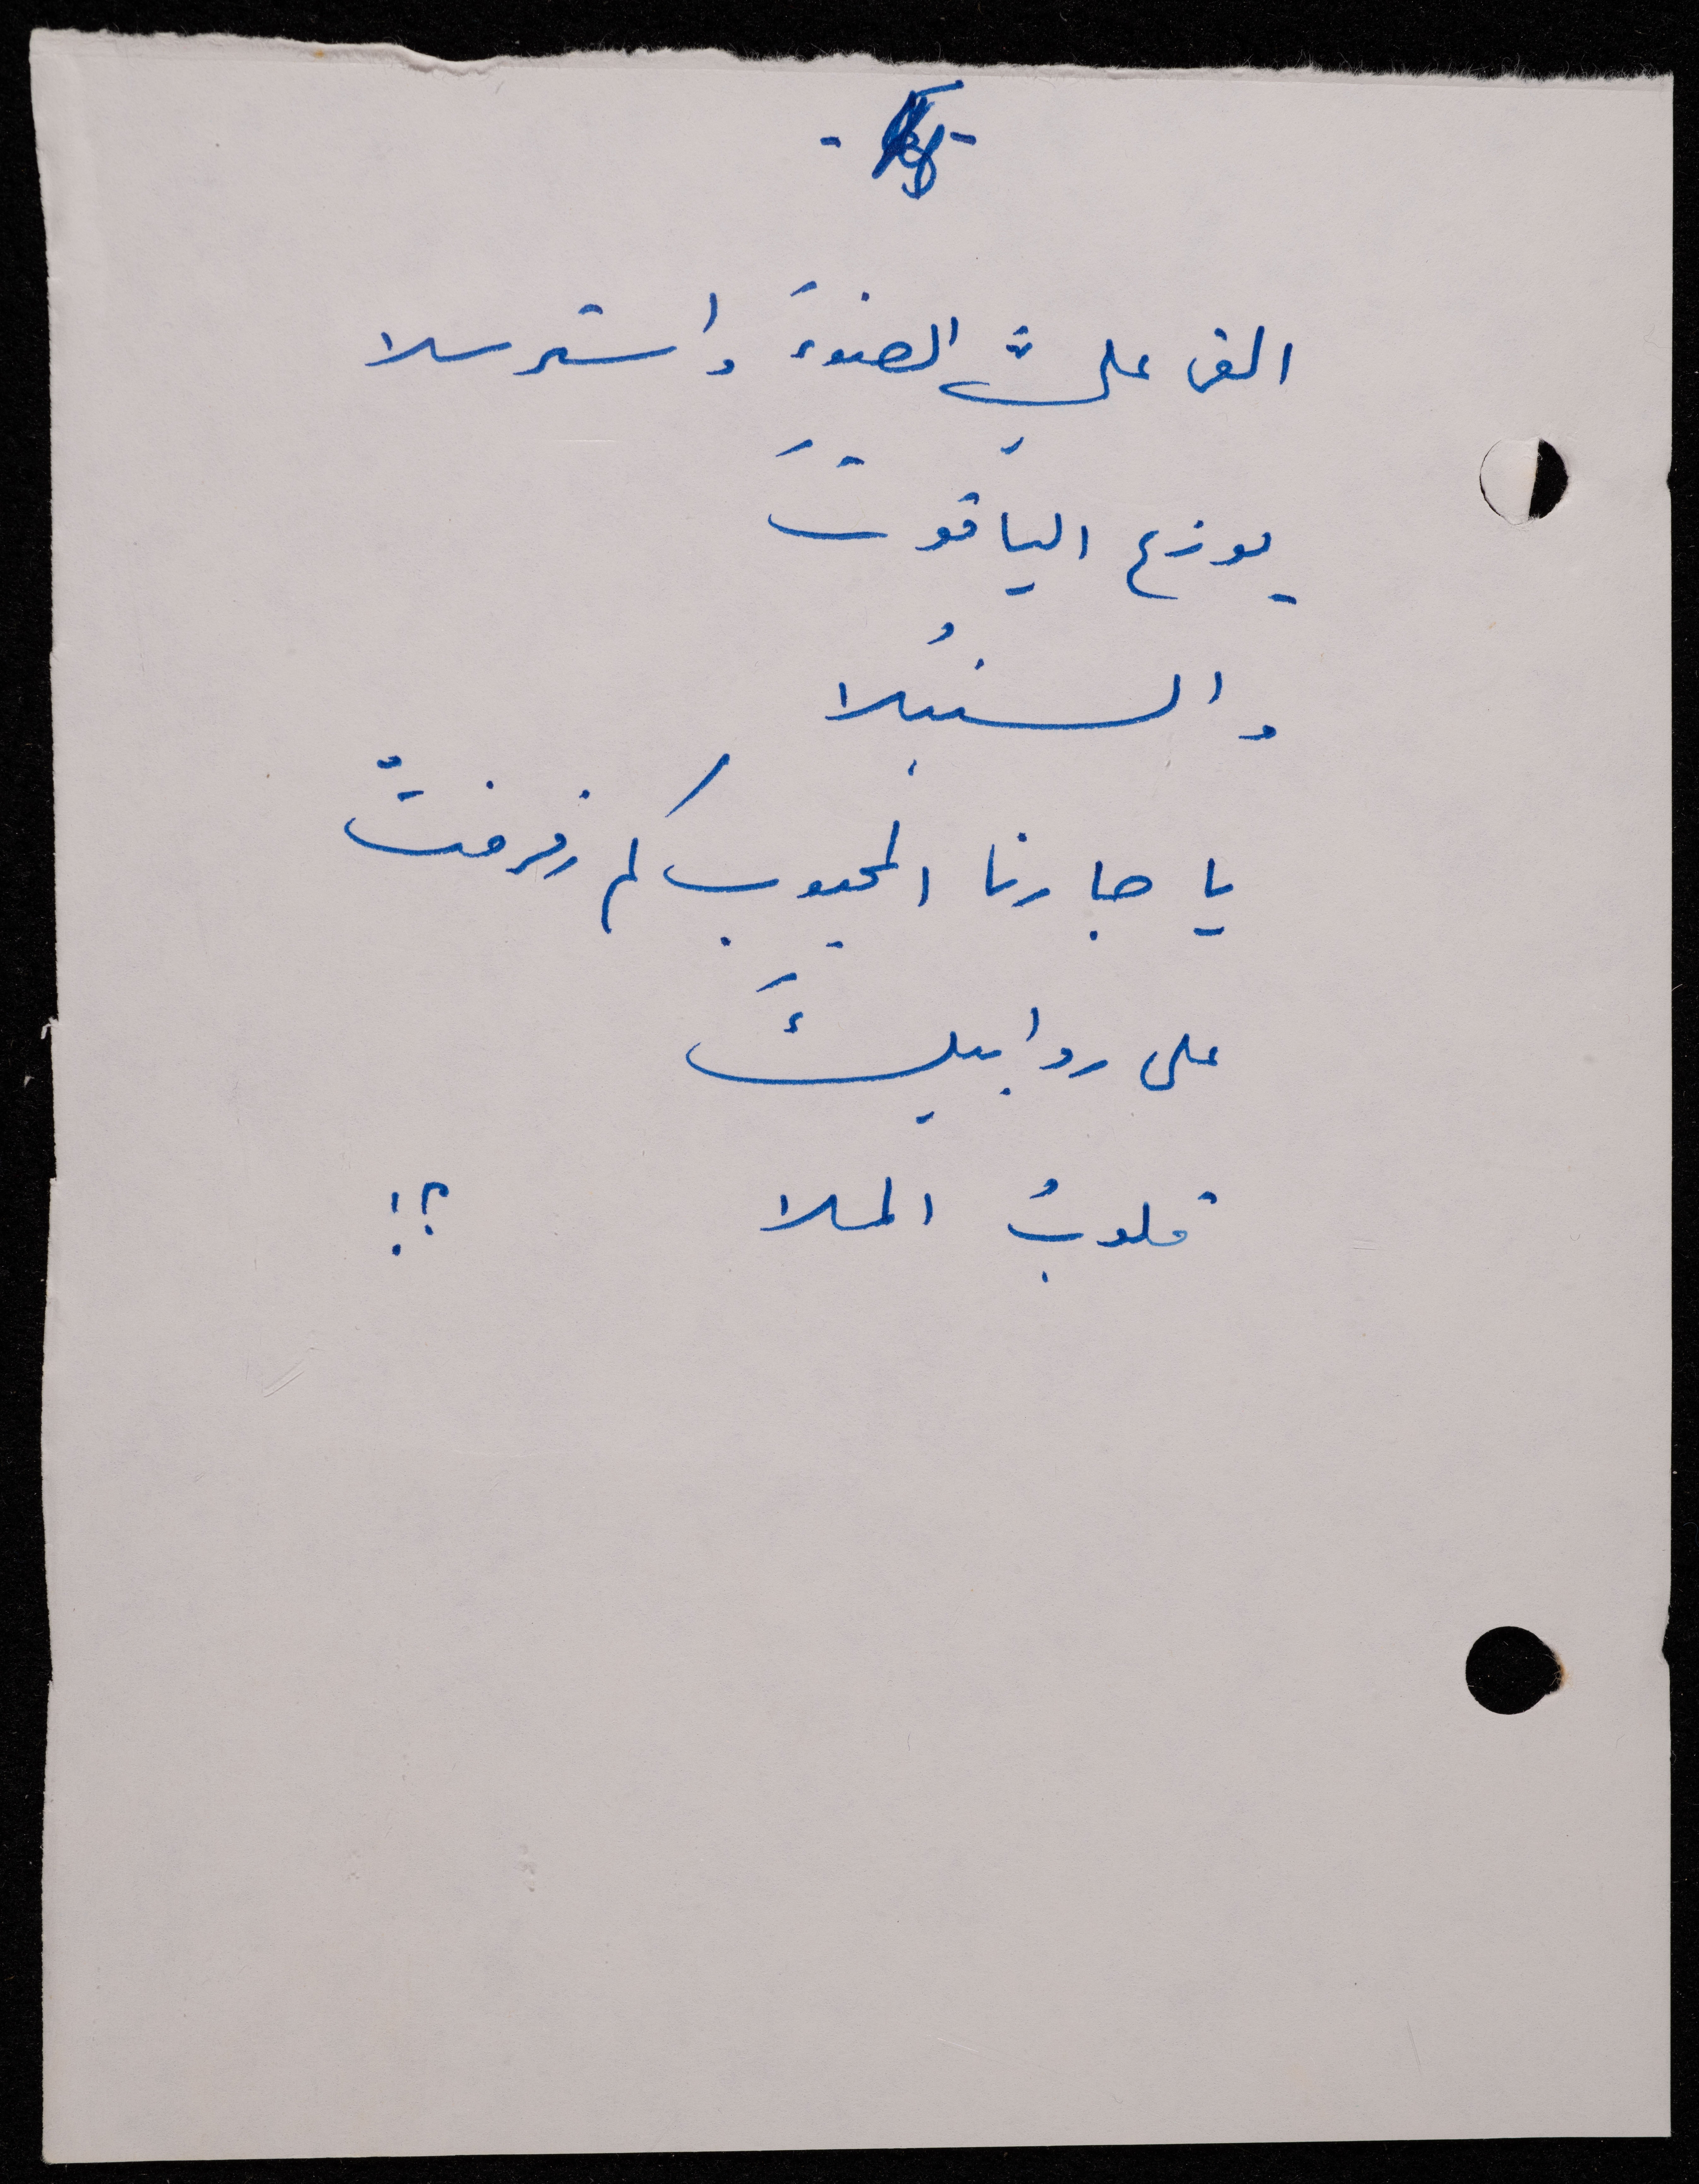 القى عليَّ الضوءَ واسترسلا
يوزع الياقوتَ
والسنبُلا
يا جارنا المحبوب كم رفرفتْ
على روابيكَ
قلوبُ الملا ؟!